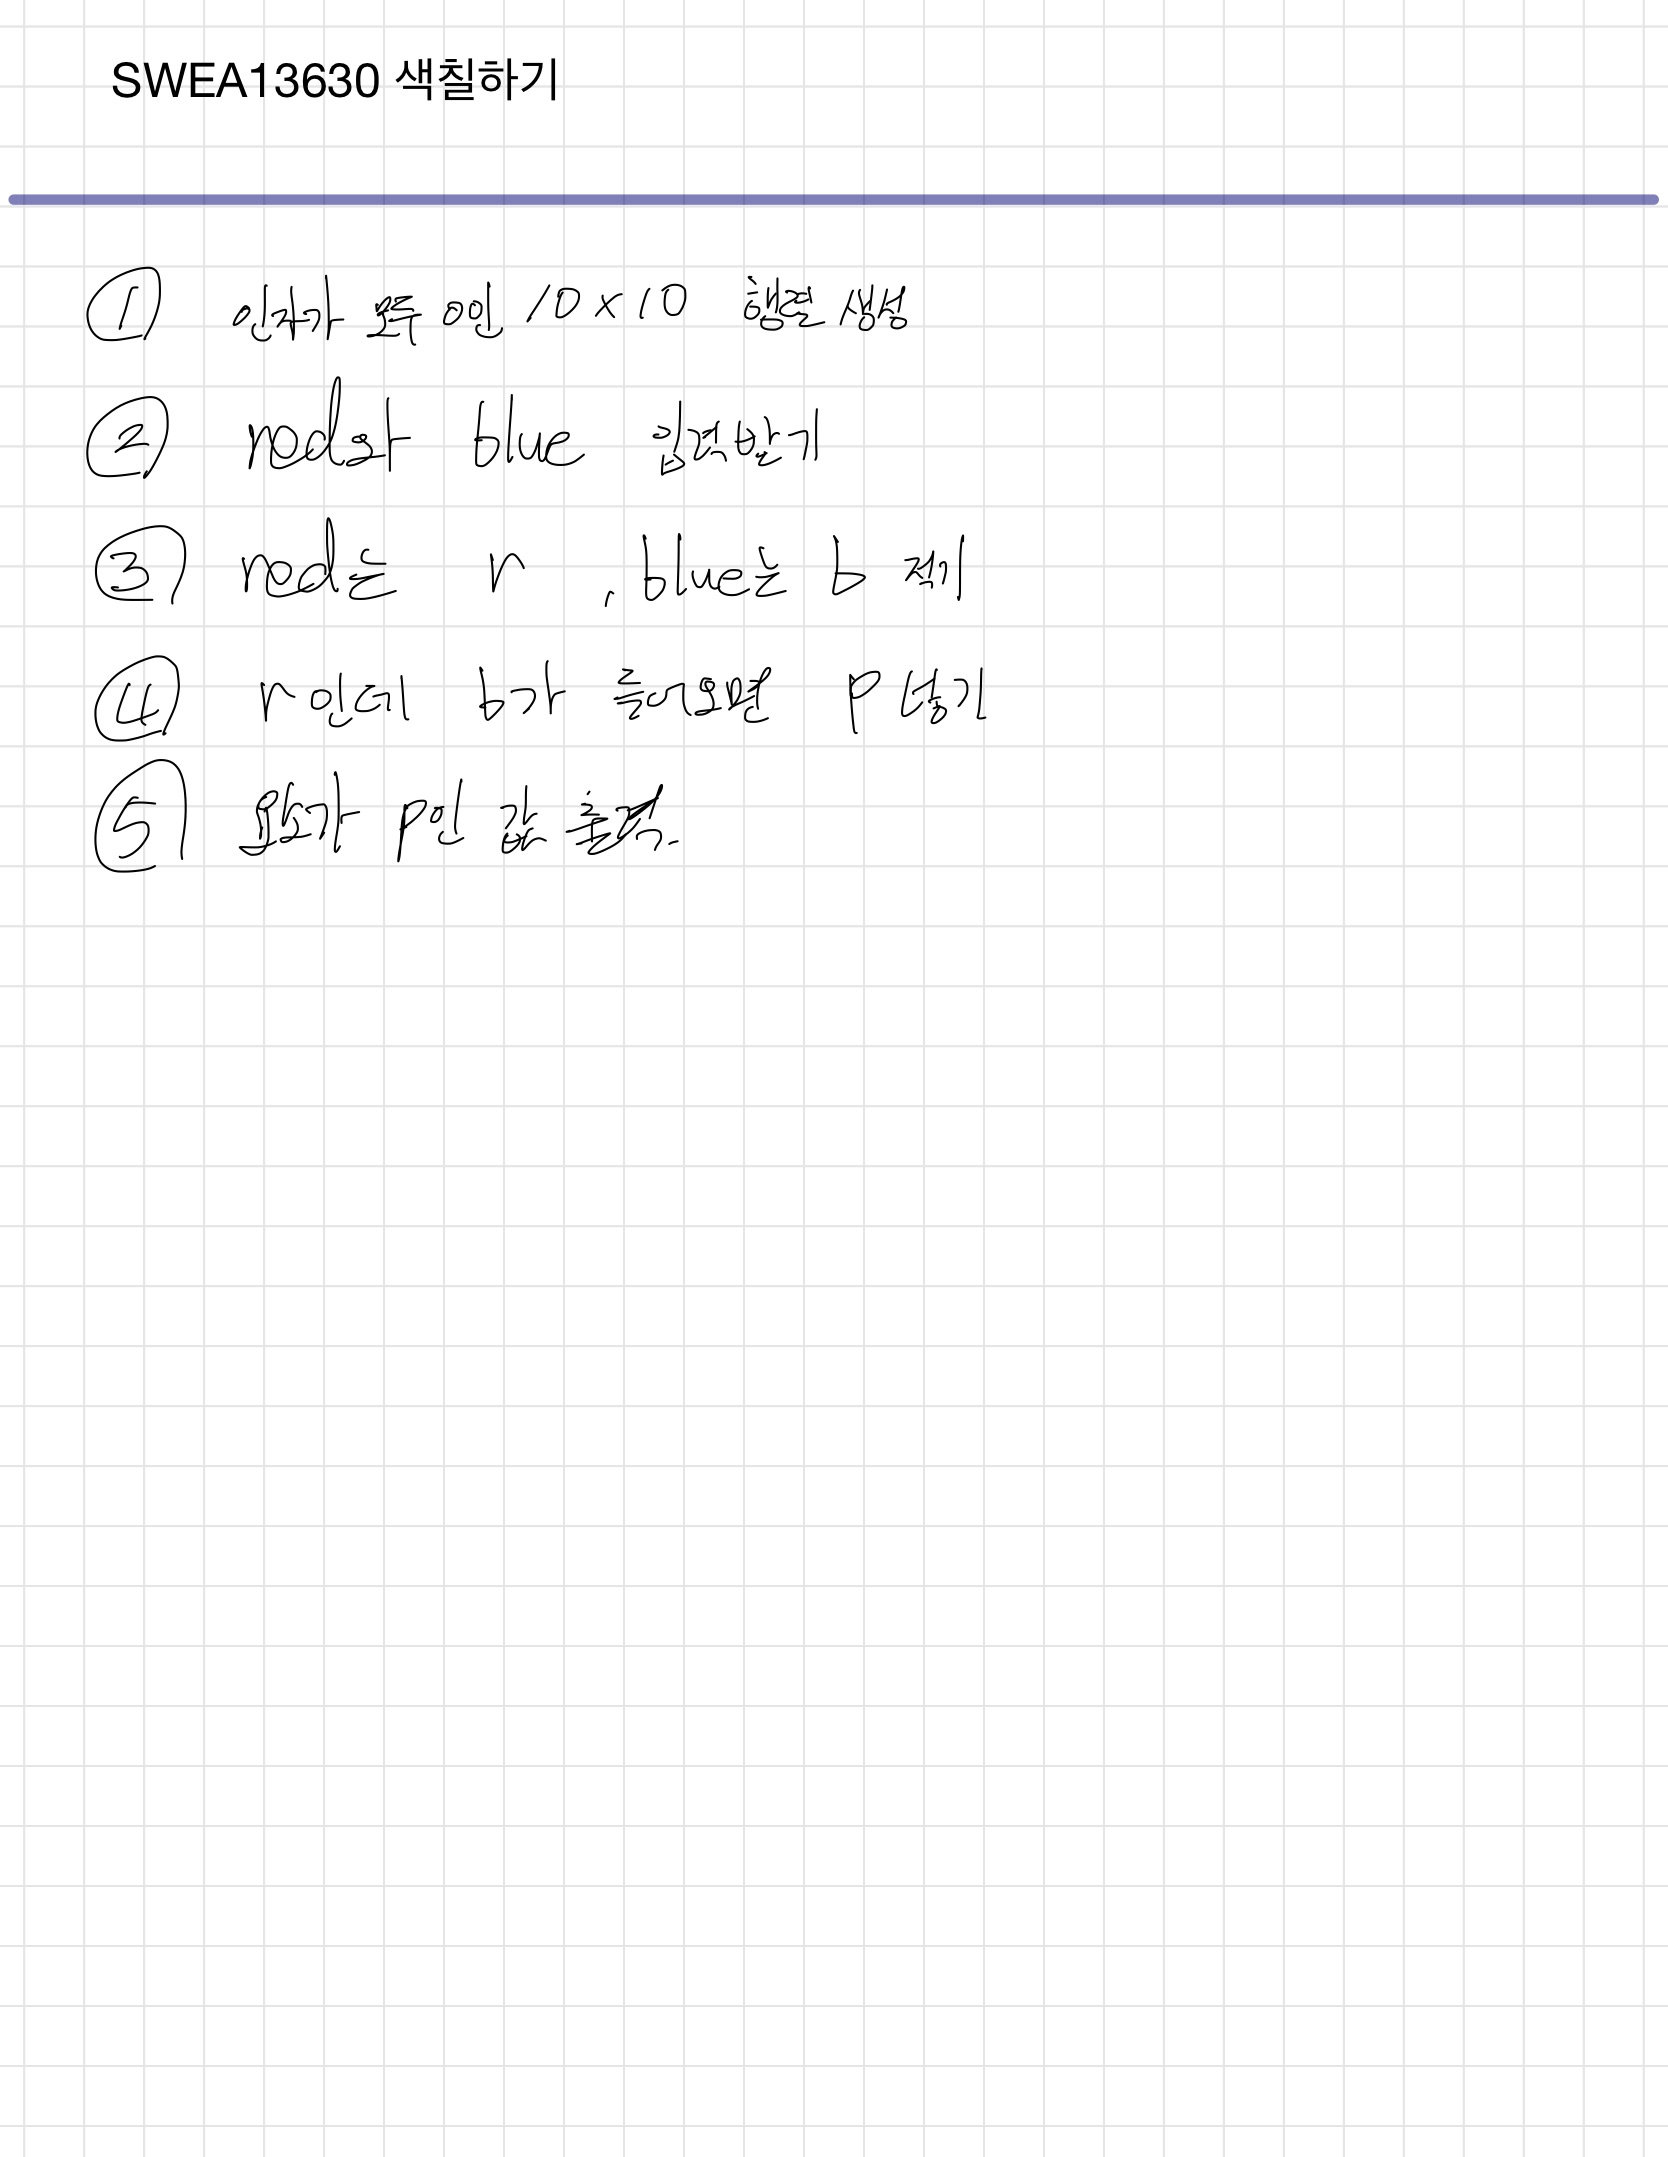 SWEA13630 색칠하기
① 인자가 모두 0인 10x10 행렬 생성
② red와 blue 입력받기
③ red는 r , blue는 b 적기
④ r인데 b가 들어오면 p 넣기
⑤ 요소가 p인 값 출력.